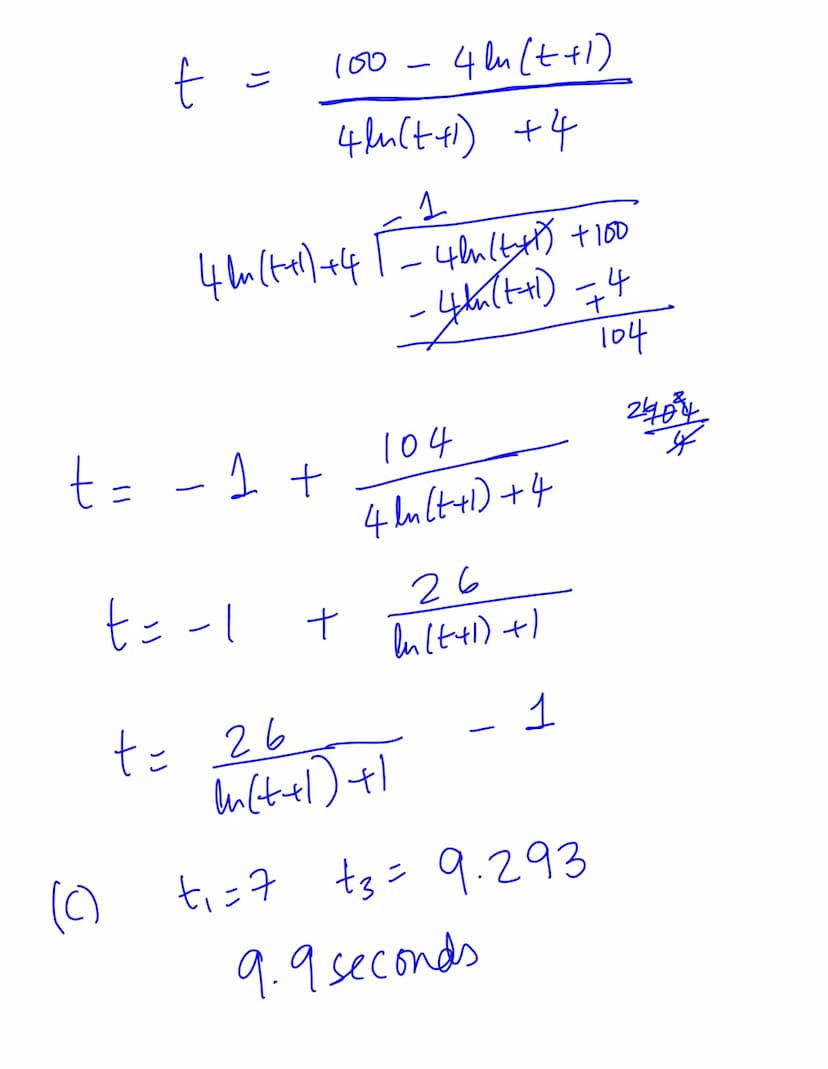 t = (100 - 4 ln(t+1)) / (4 ln(t+1) + 4)
-1
4 ln(t+1)+4 √ -4 ln(t+1) +100
-4 ln(t+1) -4
+
104
t = -1 + 104 / (4 ln(t+1) + 4)
t = -1 + 26 / (ln(t+1) + 1)
t = 26 / (ln(t+1) + 1) - 1
(c) t₁ = 7 t₃ = 9.293
9.9 seconds